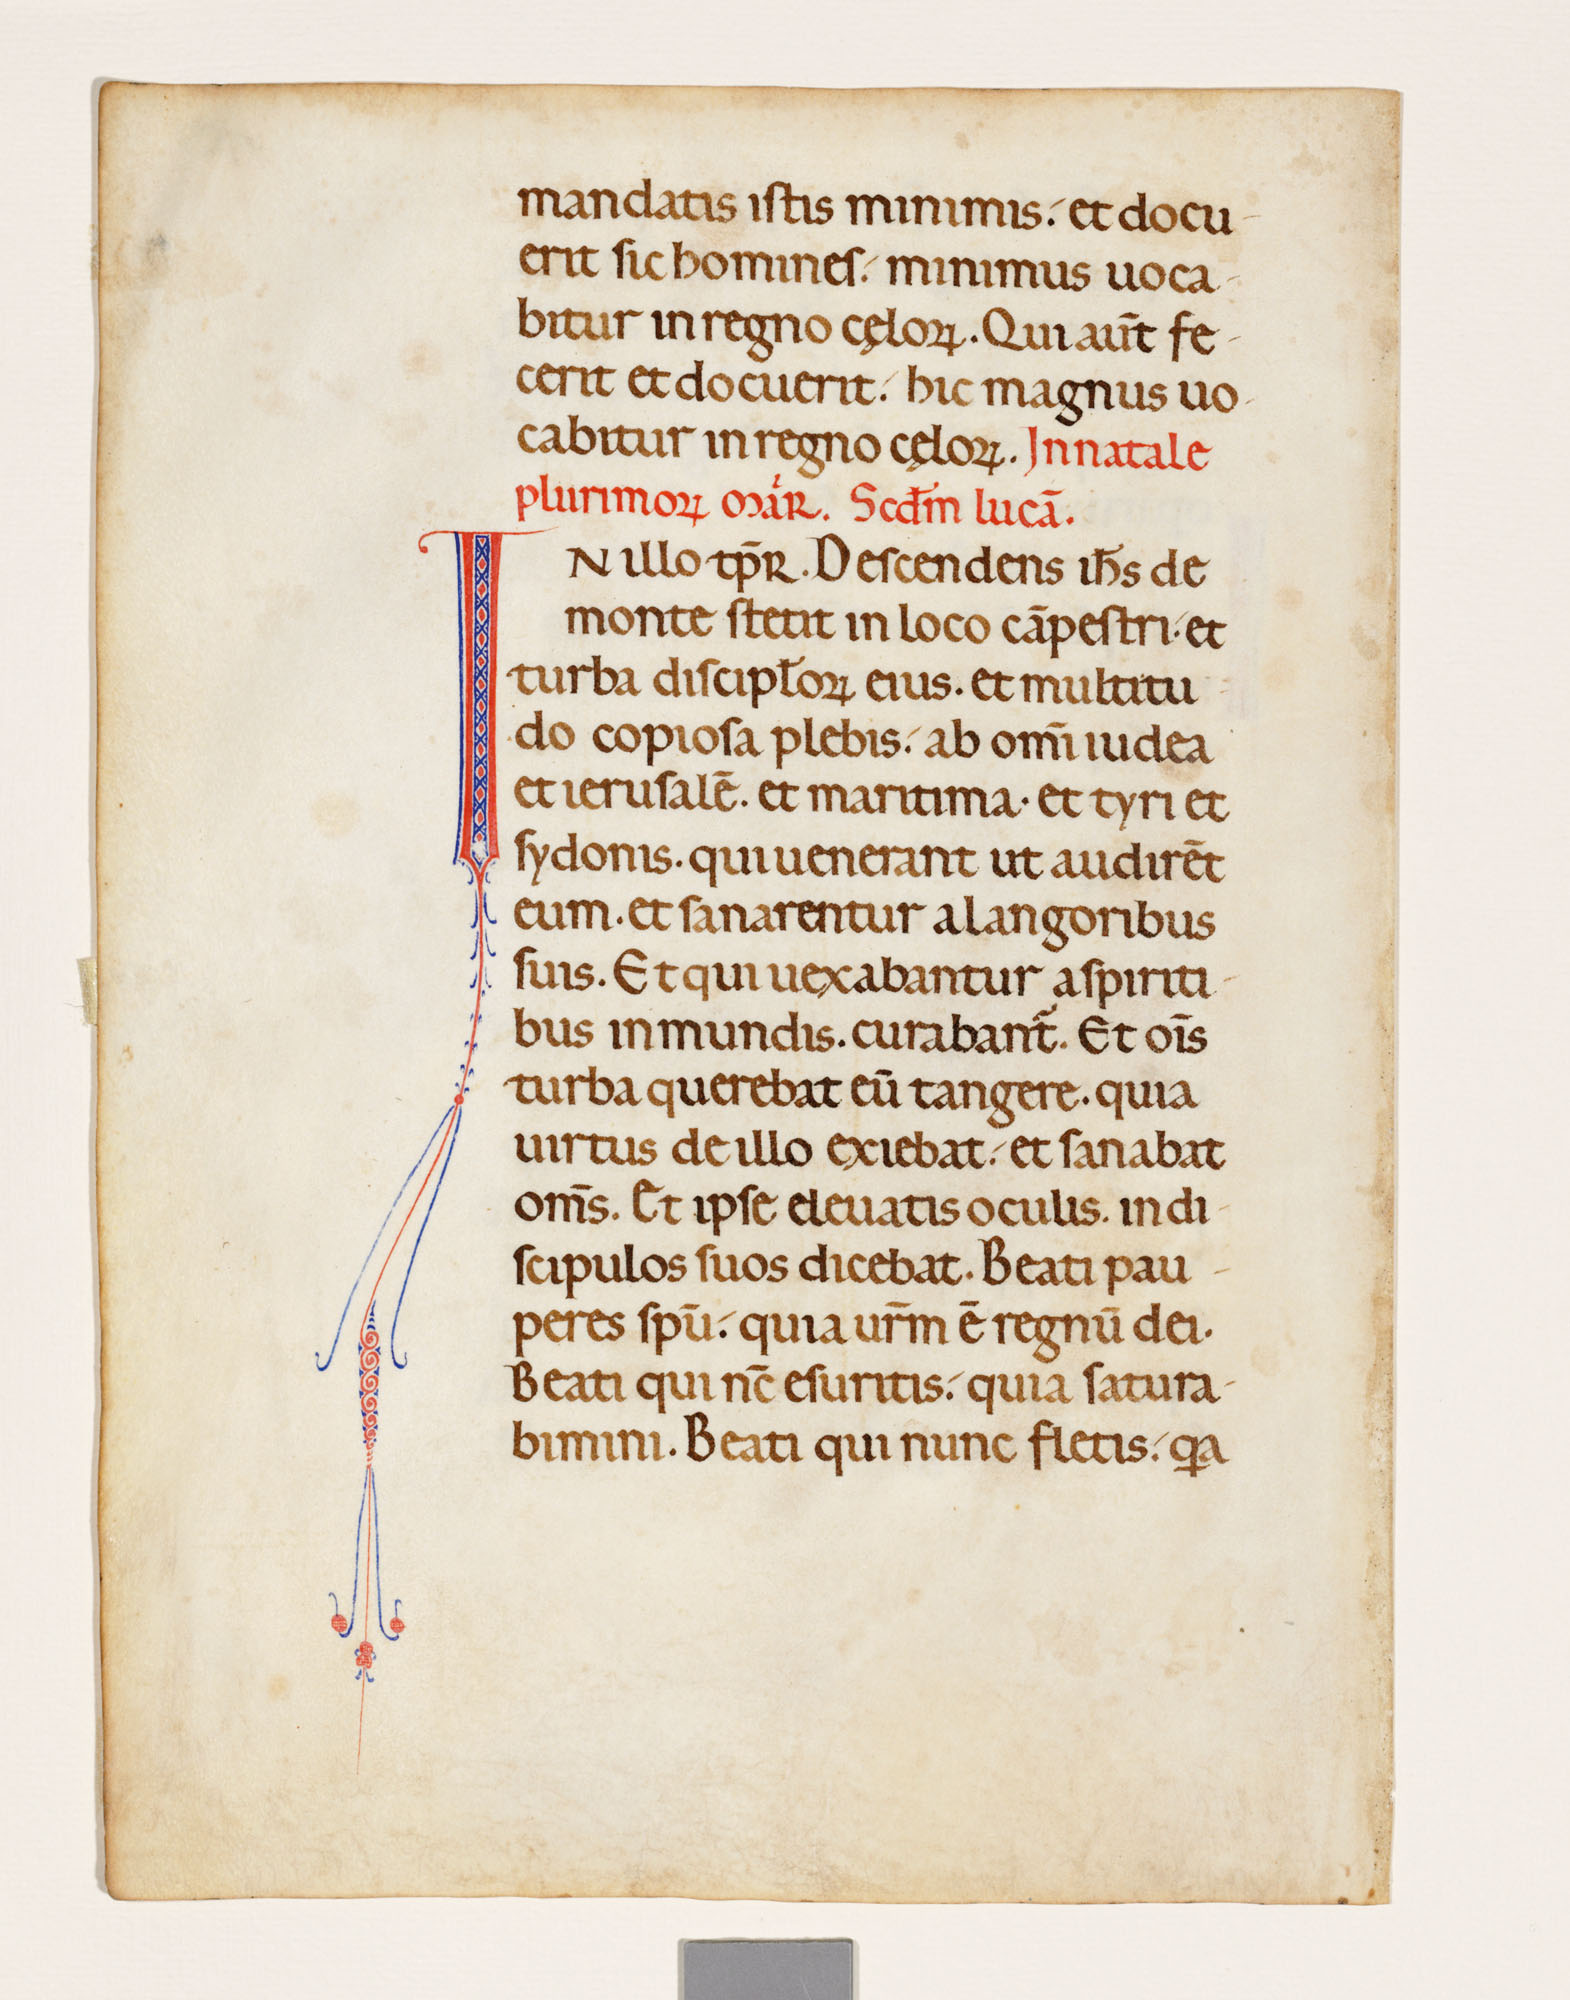 mandatis iſtis minimis ⹎ et docu-
erit ſic homineſ ⹎ minimus uoca-
bitur in regno cęloꝝ. Qui aūt fe-
cerit et docuerit ⹎ hic magnus uo-
cabitur in regno cęloꝝ. In natale
plurimoꝝ maŕ. Scđm lucā.
IN illo tp̄r. Deſcendens ih̄s de
monte ſtetit in loco cāpeſtri ⹎ et
turba diſcipl̄oꝝ eius. et multitu
do copioſa plebis ⹎ ab om̄i iudea
et ieruſalē. et maritima. et tyri et
ſydonis. qui uenerant ut audirēt
eum. et ſanarentur a langoribus
ſuis. Et qui uexabantur a ſpiriti-
bus inmundis. curabant̄. Et oīs
turba querebat eū tangere. quia
uirtus de illo exiebat ⹎ et ſanabat
om̄s. Et ipſe eleuatis oculis. in di-
ſcipulos ſuos dicebat. Beati pau-
peres ſpū ⹎ quia ur̄m ē regnū dei.
Beati qui nc̄ eſuritis ⹎ quia ſatura-
bimini. Beati qui nunc fletis ⹎ qa